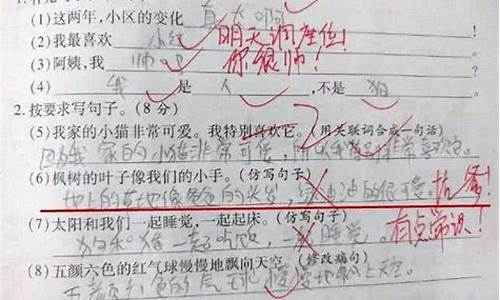 (1)这两年,小区的变化真大啊
(2)我最喜欢 小红 明天调座位!
(3)阿姨,我 帅吗 你很帅!
(4) 我 是 人 ,不是 狗
2.按要求写句子。(8 分)
(5)我家的小猫非常可爱。我特别喜欢它。(用关联词合成一句话)
因为我家的小猫非常可爱,所以我特别非常喜欢它。
(6)枫树的叶子像我们的小手。(仿写句子)
地上的草地像爸爸的头发,绿油油的很可爱。
(7)太阳和我们一起睡觉,一起起床。(仿写句子)
狗和猪一起吃饭,一起睡觉。 有点常识!
(8)五颜六色的红气球慢慢地飘向天空。(修改病句)
五颜六色的气球慢慢地飘上天空。